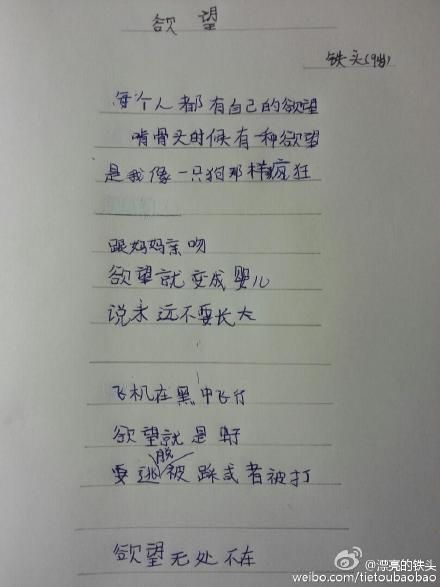 欲望
铁头(9岁)
每个人都有自己的欲望
啃骨头时候有一种欲望
是我像一只狗那样疯狂
跟妈妈亲吻
欲望就变成婴儿
说永远不要长大
飞机在黑中飞行
欲望就是蚜
要逃脱被踩或者被打
欲望无处不在
@漂亮的铁头
weibo.com/tietoubaobao